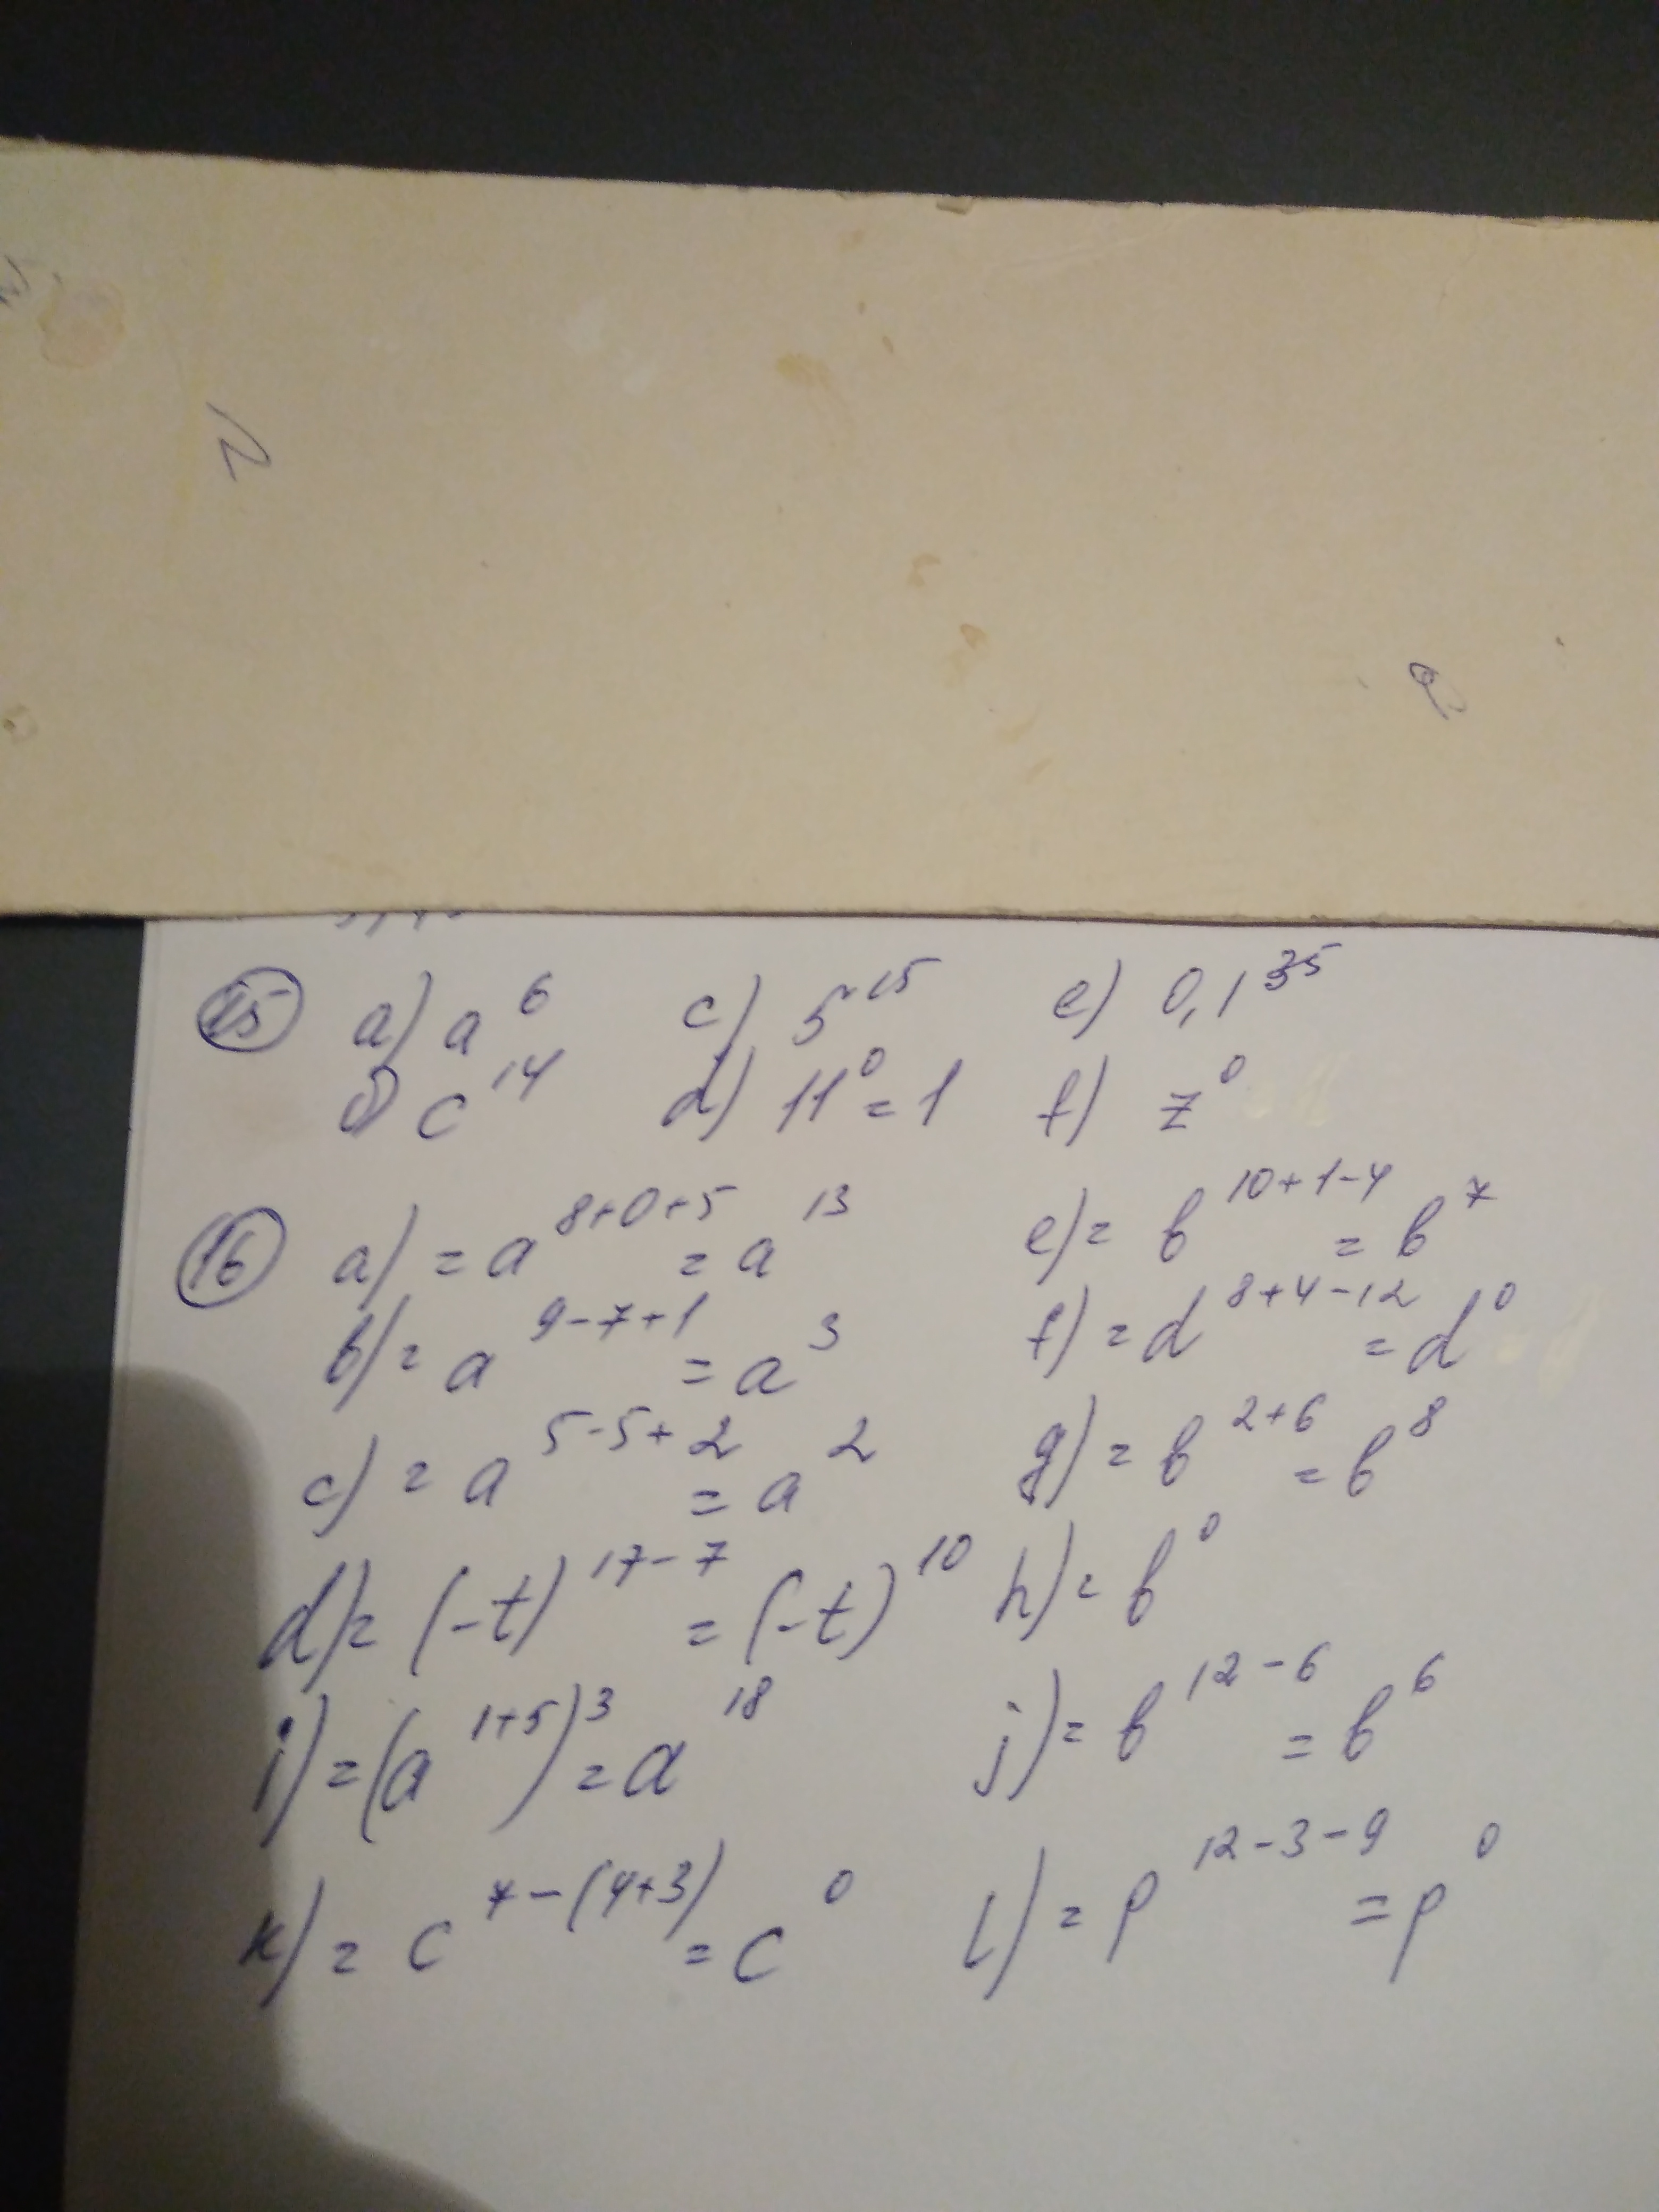 15 a) a^6 c) 5^15 e) 0,1^35
б) c^14 d) 11^0 = 1 f) z^0
16 a) = a^8+0+5 = a^13 e) = b^10+1-4 = b^7
b) = a^9-7+1 = a^3 f) = d^8+4-12 = d^0
c) = a^5-5+2 = a^2 g) = b^2+6 = b^8
d) = (-t)^17-7 = (-t)^10 h) = b^0
i) = (a^1+5)^3 = a^18 j) = b^12-6 = b^6
k) = c^7-(4+3) = c^0 l) = p^12-3-9 = p^0